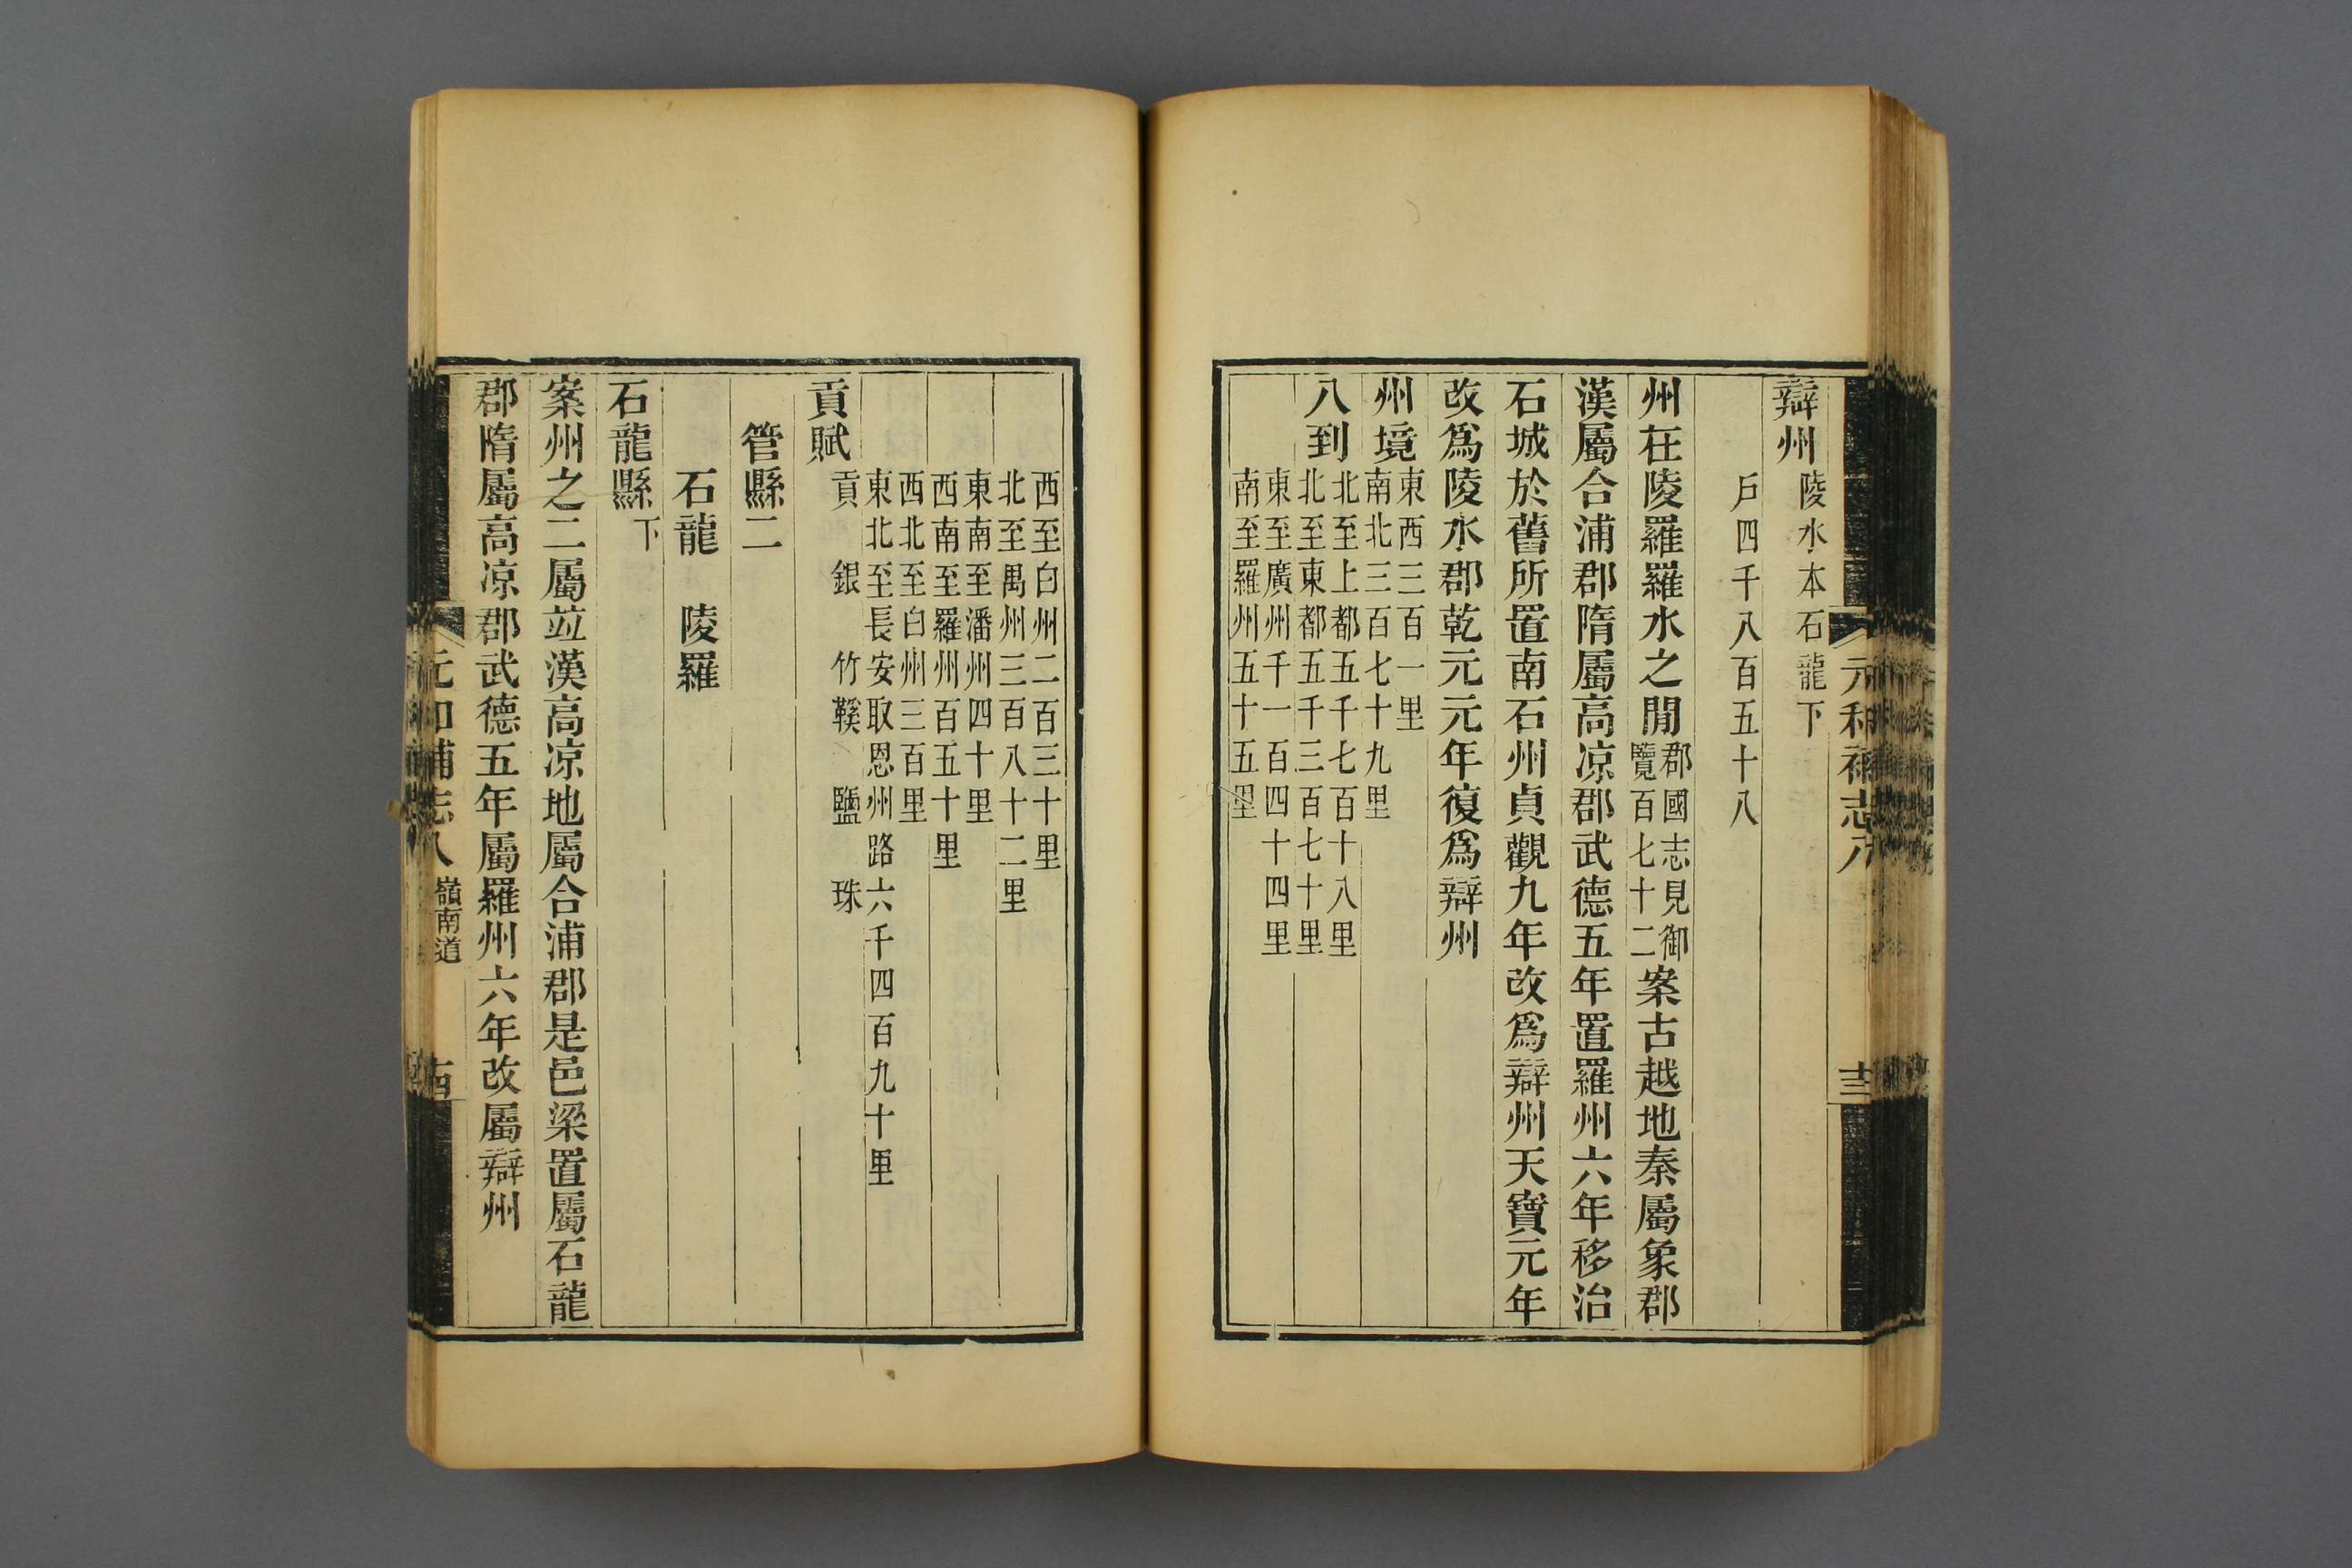 元和補志八 十三
辯州陵水本石龍下
戶四千八百五十八
州在陵羅羅水之閒郡國志見御覽百七十二案古越地秦屬象郡
漢屬合浦郡隋屬高凉郡武德五年置羅州六年移治
石城於舊所置南石州貞觀九年改爲辯州天寶元年
改爲陵水郡乾元元年復爲辯州
州境東西三百一里南北三百七十九里
八到北至上都五千七百十八里北至東都五千三百七十里
東至廣州千一百四十四里南至羅州五十五里
西至白州二百三十里北至禺州三百八十二里
東南至潘州四十里西南至羅州百五十里
西北至白州三百里東北至長安取恩州路六千四百九十里
貢賦貢 銀 竹鞵 鹽 珠
管縣二
石龍 陵羅
石龍縣下
案州之二屬竝漢高凉地屬合浦郡是邑梁置屬石龍
郡隋屬高凉郡武德五年屬羅州六年改屬辯州
元和補志八 嶺南道 十四